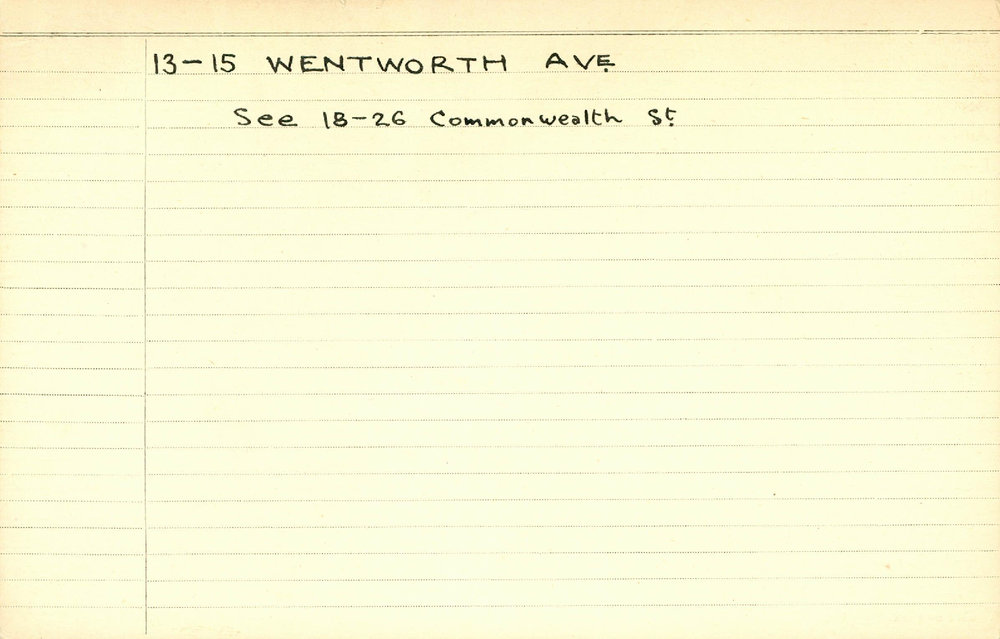 13-15 WENTWORTH AVE.
See 18-26 Commonwealth St.